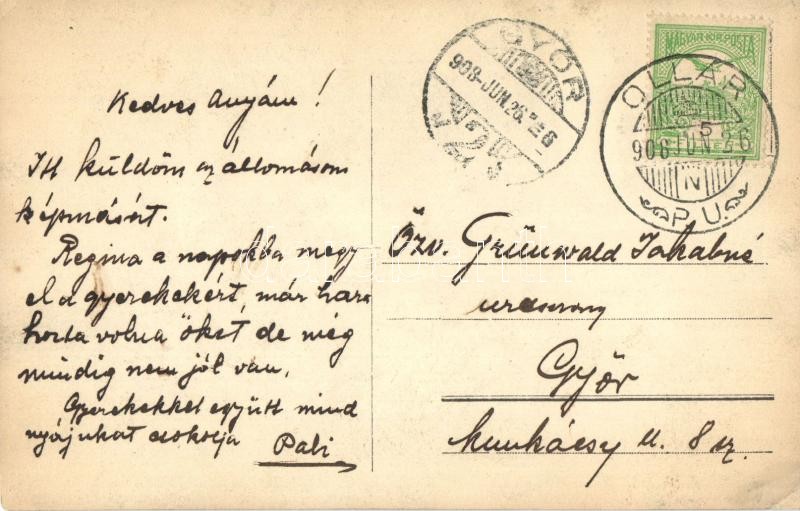 Kedves Anyám!
Itt küldöm az állomásom
képmását.
Regina a napokba megy
el a gyerekekért, már haza
hozta volna őket, de még
mindig nem jól van.
Gyerekekkel együtt mind
nyájukat csokolja
Pali
GYŐR
908-JUN.26.
MAGYAR KIR. POSTA
OLLÁR
5
908 JUN 26
N
P.U.
Özv. Grünwald Jakabné
urasszony
Győr
Munkácsy u. 8 sz.